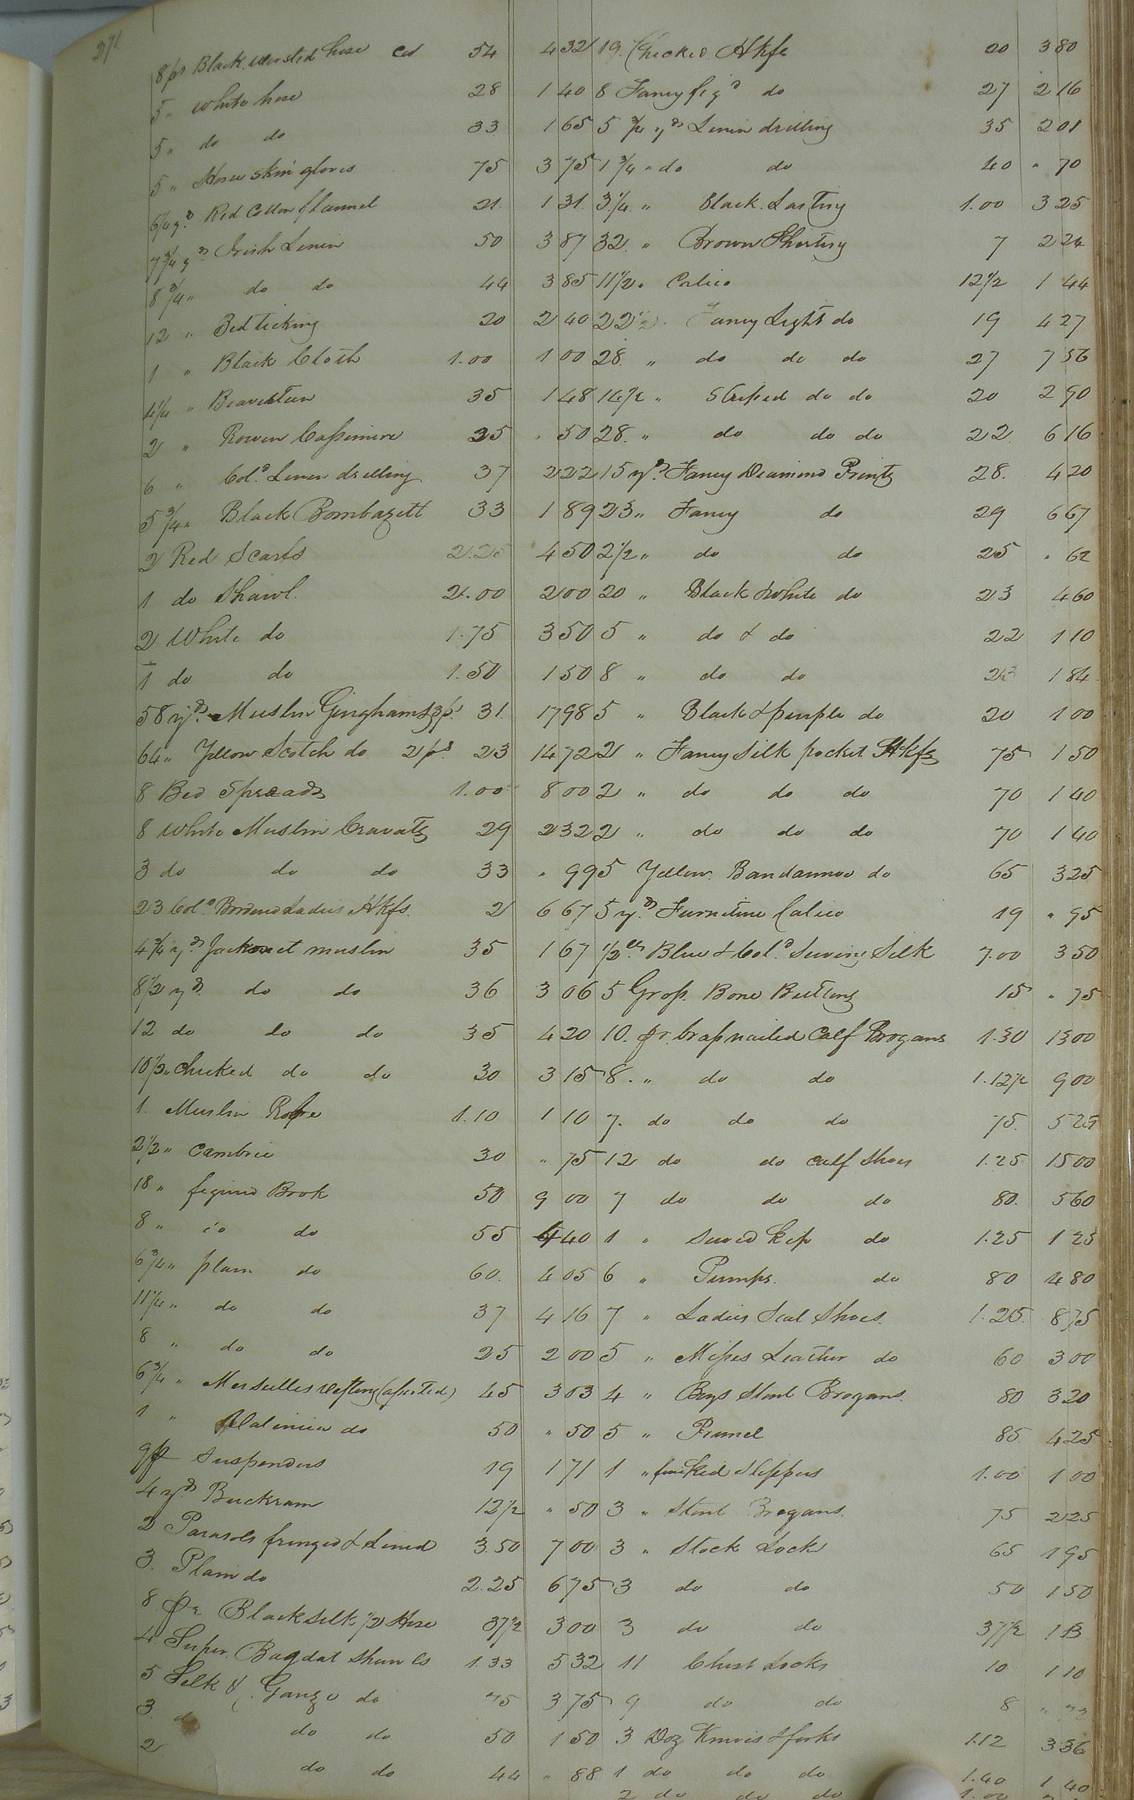 271
8 pr Black worsted hose Cts 54 4 32
5 " White hose 28 1 40
5 " do do 33 1 65
5 " Horse skin gloves 75 3 75
6¼ yds Red Cotton flannel 21 1 31
7¾ yds Irish Linen 50 3 87
8¾ " do do 44 3 85
12 " Bed ticking 20 2 40
1 " Black Cloth 1.00 1 00
4¼ " Beaverteen 35 1 48
2 " Rowen Cassimere 25 " 50
6 " Cold Linen drilling 37 2 22
5¾ " Black Bombazett 33 1 89
2 Red Scarfs 2.25 4 50
1 do Shawl 2.00 2 00
2 White do 1.75 3 50
1 do do 1.50 1 50
58 yds Muslin Ginghams 2ps 31 17 98
64 " Yellow Scotch do 2ps 23 14 72
8 Bed Spreads 1.00 8 00
8 White Muslin Cravats 29 2 32
3 do do do 33 " 99
23 Cold Bordered Ladies Hkfs 2 6 67
4¾ yds Jackonet muslin 35 1 67
8½ yds do do 36 3 06
12 do do do 35 4 20
10½ " Checked do do 30 3 15
1 Muslin Robe 1.10 1 10
2½ " Cambric 30 " 75
18 " figured Book 50 9 00
8 " do do 55 4 40
6¾ " plain do 60 4 05
11¼ " do do 37 4 16
8 " do do 25 2 00
6¾ " Merseilles vesting (assorted) 45 3 03
1 " do 50 " 50
9 pr Suspenders 19 1 71
4 yds Buckram 12½ " 50
2 Parasols fringed & Lined 3.50 7 00
3 Plain do 2.25 6 75
8 pr Black silk ½ Hose 37½ 3 00
4 Super Bagdat Shawls 1.33 5 32
5 Silk & Ganze do 75 3 75
3 do do do 50 1 50
2 do do 44 " 88
19 Checked Hkfs 20 3 80
8 Fancy figd do 27 2 16
5¾ yds Linen drilling 35 2 01
1¾ " do do 40 " 70
3¼ " Black Lasting 1.00 3 25
32 " Brown Shirting 7 2 24
11½ " Calico 12½ 1 44
22½ " Fancy Light do 19 4 27
28 " do do do 27 7 56
14½ " Striped do do 20 2 90
28 " do do do 22 6 16
15 yds Fancy Diamond Prints 28 4 20
23 " Fancy do 29 6 67
2½ " do do 25 " 62
20 " Black & White do 23 4 60
5 " do & do 22 1 10
8 " do do 23 1 84
5 " Black & purple do 20 1 00
2 " Fancy Silk pocket Hkfs 75 1 50
2 " do do do 70 1 40
2 " do do do 70 1 40
5 Yellow Bandannoe do 65 3 25
5 yds Furniture Calico 19 " 95
½ lb Blue & Cold Sewing Silk 7.00 3 50
5 Gross Bone Buttons 15 " 75
10 pr brass nailed Calf Brogans 1.30 13 00
8 " do do 1.12½ 9 00
7 do do do 75 5 25
12 do do calf Shoes 1.25 15 00
7 do do do 80 5 60
1 " sewed kip do 1.25 1 25
6 " Pumps do 80 4 80
7 " Ladies Seal Shoes 1.25 8 75
5 " Misses Leather do 60 3 00
4 " Boys Stout Brogans 80 3 20
5 " 85 4 25
1 " Slippers 1.00 1 00
3 " Stout Brogans 75 2 25
3 " Stock Lock 65 1 95
3 do do 50 1 50
3 do do 37½ 1 13
11 Chest Locks 10 1 10
9 do do 8
3 Doz Knives & forks 1.12 3 36
1 do do do 1.40 1 40
2 do do do 1.00